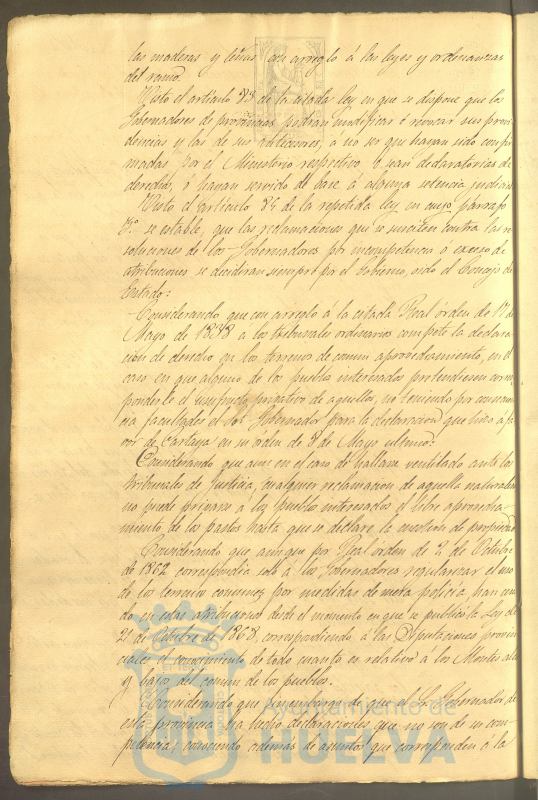 las maderas y leñas con arreglo á las leyes y ordenanzas
del ramo.
Visto el artículo 83 de la citada ley en que se dispone que los
Gobernadores de provincias podran modificar ó revocar sus provi
dencias y las de sus antecesores, á no ser que hayan sido confir
madas por el Ministerio respectivo ó sean declaratorias de
derechos, ó hayan servido de base á alguna setencia judicial
Visto el artículo 84 de la repetida ley en cuyo párrafo
3º se estable, que las reclamaciones que se susciten contra las re
soluciones de los Gobernadores por incompetencia ó exceso de
atribuciones se decidiran siempre por el Gobierno, oido el Consejo de
Estado:
Considerando que con arreglo á la citada Real órden de 17 de
Mayo de 1838 á los tribunales ordinarios compete la declara
cion de derecho en los terrenos de comun aprovechamiento, en el
caso en que alguno de los pueblos interesados pretendiesen corres
ponderle el usufructo privativo de aquellos, no teniendo por consecuen
cia facultades el Sor Gobernador para la declaracion que hizo á fa
vor de Cartaya en su órden de 8 de Mayo ultimo.
Considerando que aun en el caso de hallarse ventilado ante los
tribunales de Justicia, cualquier reclamacion de aquella naturaleza
no puede privarse á los pueblos interesados el libre aprovecha-
miento de los pastos hasta que se declare la cuestion de propiedad
Considerando que aunque por Real órden de 2 de Octubre
de 1862 correspondia solo á los Gobernadores regularizar el uso
de los terrenos comunes por medidas de mera policia, han cesa
do en estas atribuciones desde el momento en que se publicó la Ley de
21 de Octubre de 1868, correspondiendo á las Diputaciones provin
ciales el conocimiento de todo cuanto es relativo á los Montes altos
y bajos del comun de los pueblos.
Considerando que sin embargo de que el Sor Gobernador de
esta provincia ha hecho declaraciones que no son de su com-
petencia, conociendo ademas de asuntos que corresponden á la
Ayuntamiento de
HUELVA